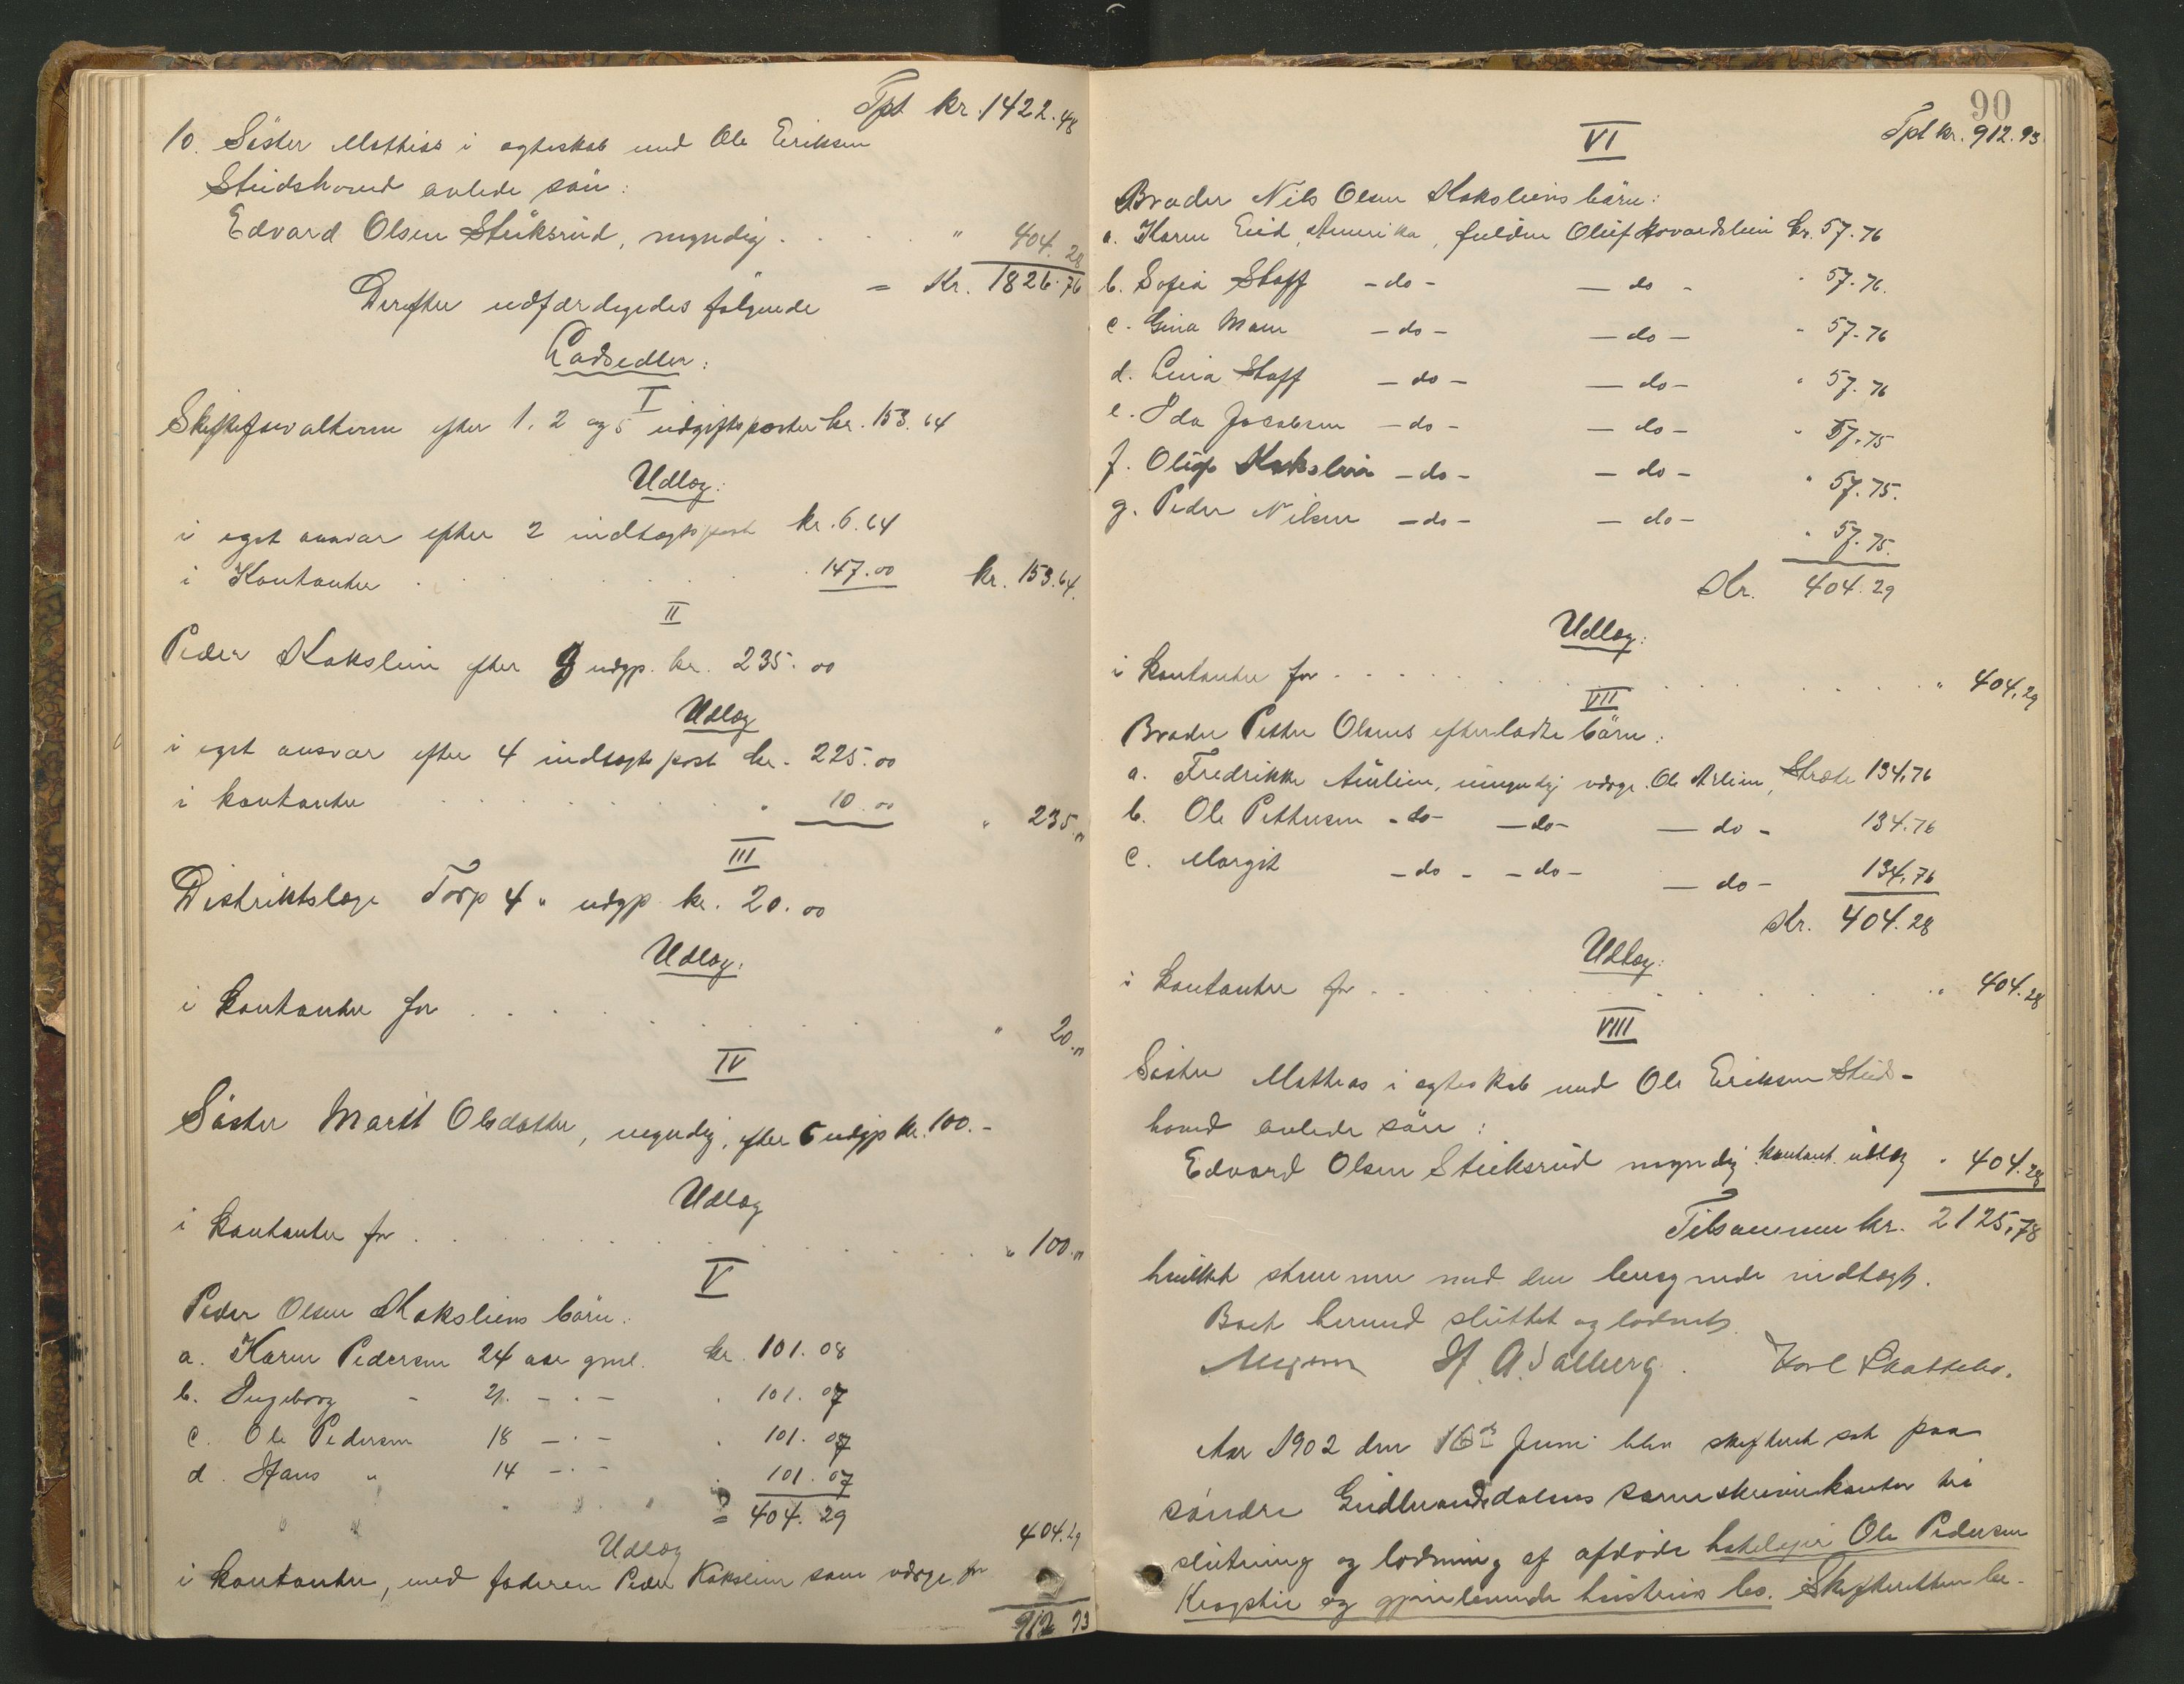 Tpt kr. 1422.48
10. Söster Mathias i egteskab med Ole Eriksen
Stridshoved avlede sön:
Edvard Olsen Stuksrud, myndig . . . . " 404.28
= Kr. 1826.76
Derefter udfærdigedes følgende
Lodsedler:
I
Skifteforvalteren efter 1, 2 og 5 udgiftsposter kr. 153.64
Udlæg:
i eget ansvar efter 2 indtægtspost kr. 6.64
i Kontanter . . . . . . 147.00 kr. 153.64.
II
Peder Kokslien efter 3 udgp. kr. 235.00
Udlæg
i eget ansvar efter 4 indtægtspost kr. 225.00
i kontanter . . . . . . " 10.00 " 235."
III
Distriktslæge Torp 4 " udgp. kr. 20.00
Udlæg:
i kontanter for . . . . . . " 20."
IV
Söster Marit Olsdatter, myndig, efter 6 udgp kr. 100.-
Udlæg
i kontanter for . . . . . . " 100."
V
Peder Olsen Koksliens börn:
a. Karen Pedersen 24 aar gml. kr. 101.08
b. Ingeborg - 21. - . - . 101.07
c. Ole Pedersen 18 - . - . 101.07
d. Hans " 14 - . - . 101.07
= 404.29
Udlæg
i kontanter, med faderen Peder Kokslien som værge for 404.29
912 93
90
Tpt kr. 912.93.
VI
Broder Nils Olsen Koksliens börn:
a. Karen Eid, Amerika, fuldm Oluf Hovardslien kr. 57.76
b. Sofia Skoff - do - - do - " 57.76.
c. Gina Moen - do - - do - " 57.76
d. Lina Skoff - do - - do - " 57.76
e. Ida Jacobsen - do - - do - " 57.75
f. Oluf Kokslien - do - - do - " 57.75.
g. Peder Nilsen - do - - do - " 57.75.
Kr. 404.29
Udlæg:
i kontanter for . . . . . . " 404.29
VII
Broder Petter Olsens efterladte börn:
a. Fredrikke umyndig værge Ole Arlien, Stræte 134.76
b. Ole Pettersen - do - - do - - do - 134.76
c. Margit - do - - do - - do - 134.76
Kr. 404.28
Udlæg:
i kontanter for . . . . . . " 404.28
VIII
Söster Mathias i egteskab med Ole Eriksen Strids-
hoved avlede sön:
Edvard Olsen Stuksrud myndig kontant udlæg " 404.28
Tilsammen kr. 2125.78
hvilket stemmer med den beregnede indtægt.
Boet hermed sluttet og loddnet.
H. A. Dalberg. Karl Skattebo.
Aar 1902 den 16de Juni blev skifteret sat paa
söndre Gudbrandsdalens sorenskriverkontor til
slutning og lodning af afdöde hoteleier Ole Pedersen
og gjenlevende hustrus bo. Skifteretten be-